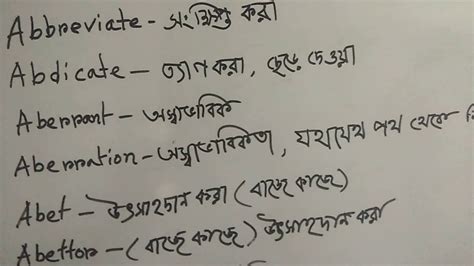 Abbreviate - সংক্ষিপ্ত করা
Abdicate - ত্যাগ করা, ছেড়ে দেওয়া
Aberrant - অস্বাভাবিক
Aberration - অস্বাভাবিকতা, যথাযথ পথ থেকে
Abet - উৎসাহদান করা (বাজে কাজে)
Abettor - (বাজে কাজে) উৎসাহদান করা